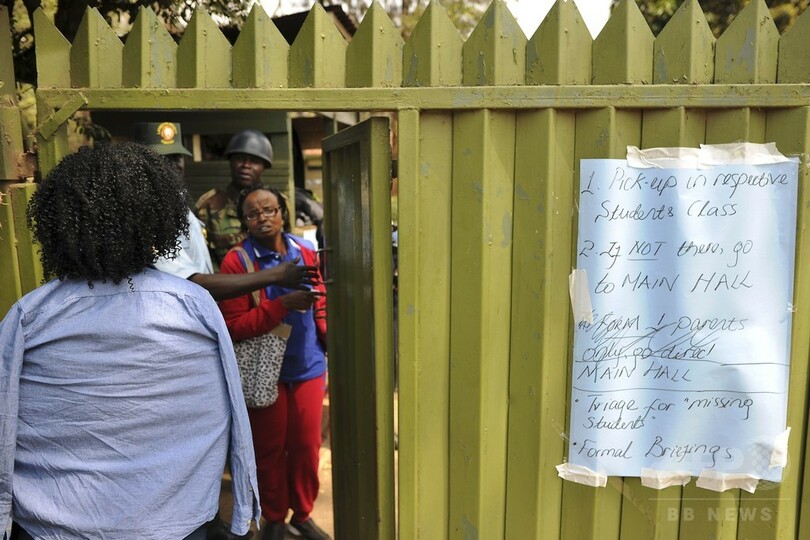 1. Pick-up in respective
Students Class
2. If NOT there, go
to MAIN HALL
FORM 1 parents
only go direct
MAIN HALL
* Triage for "missing
Students"
* Formal Briefings
BB NEWS